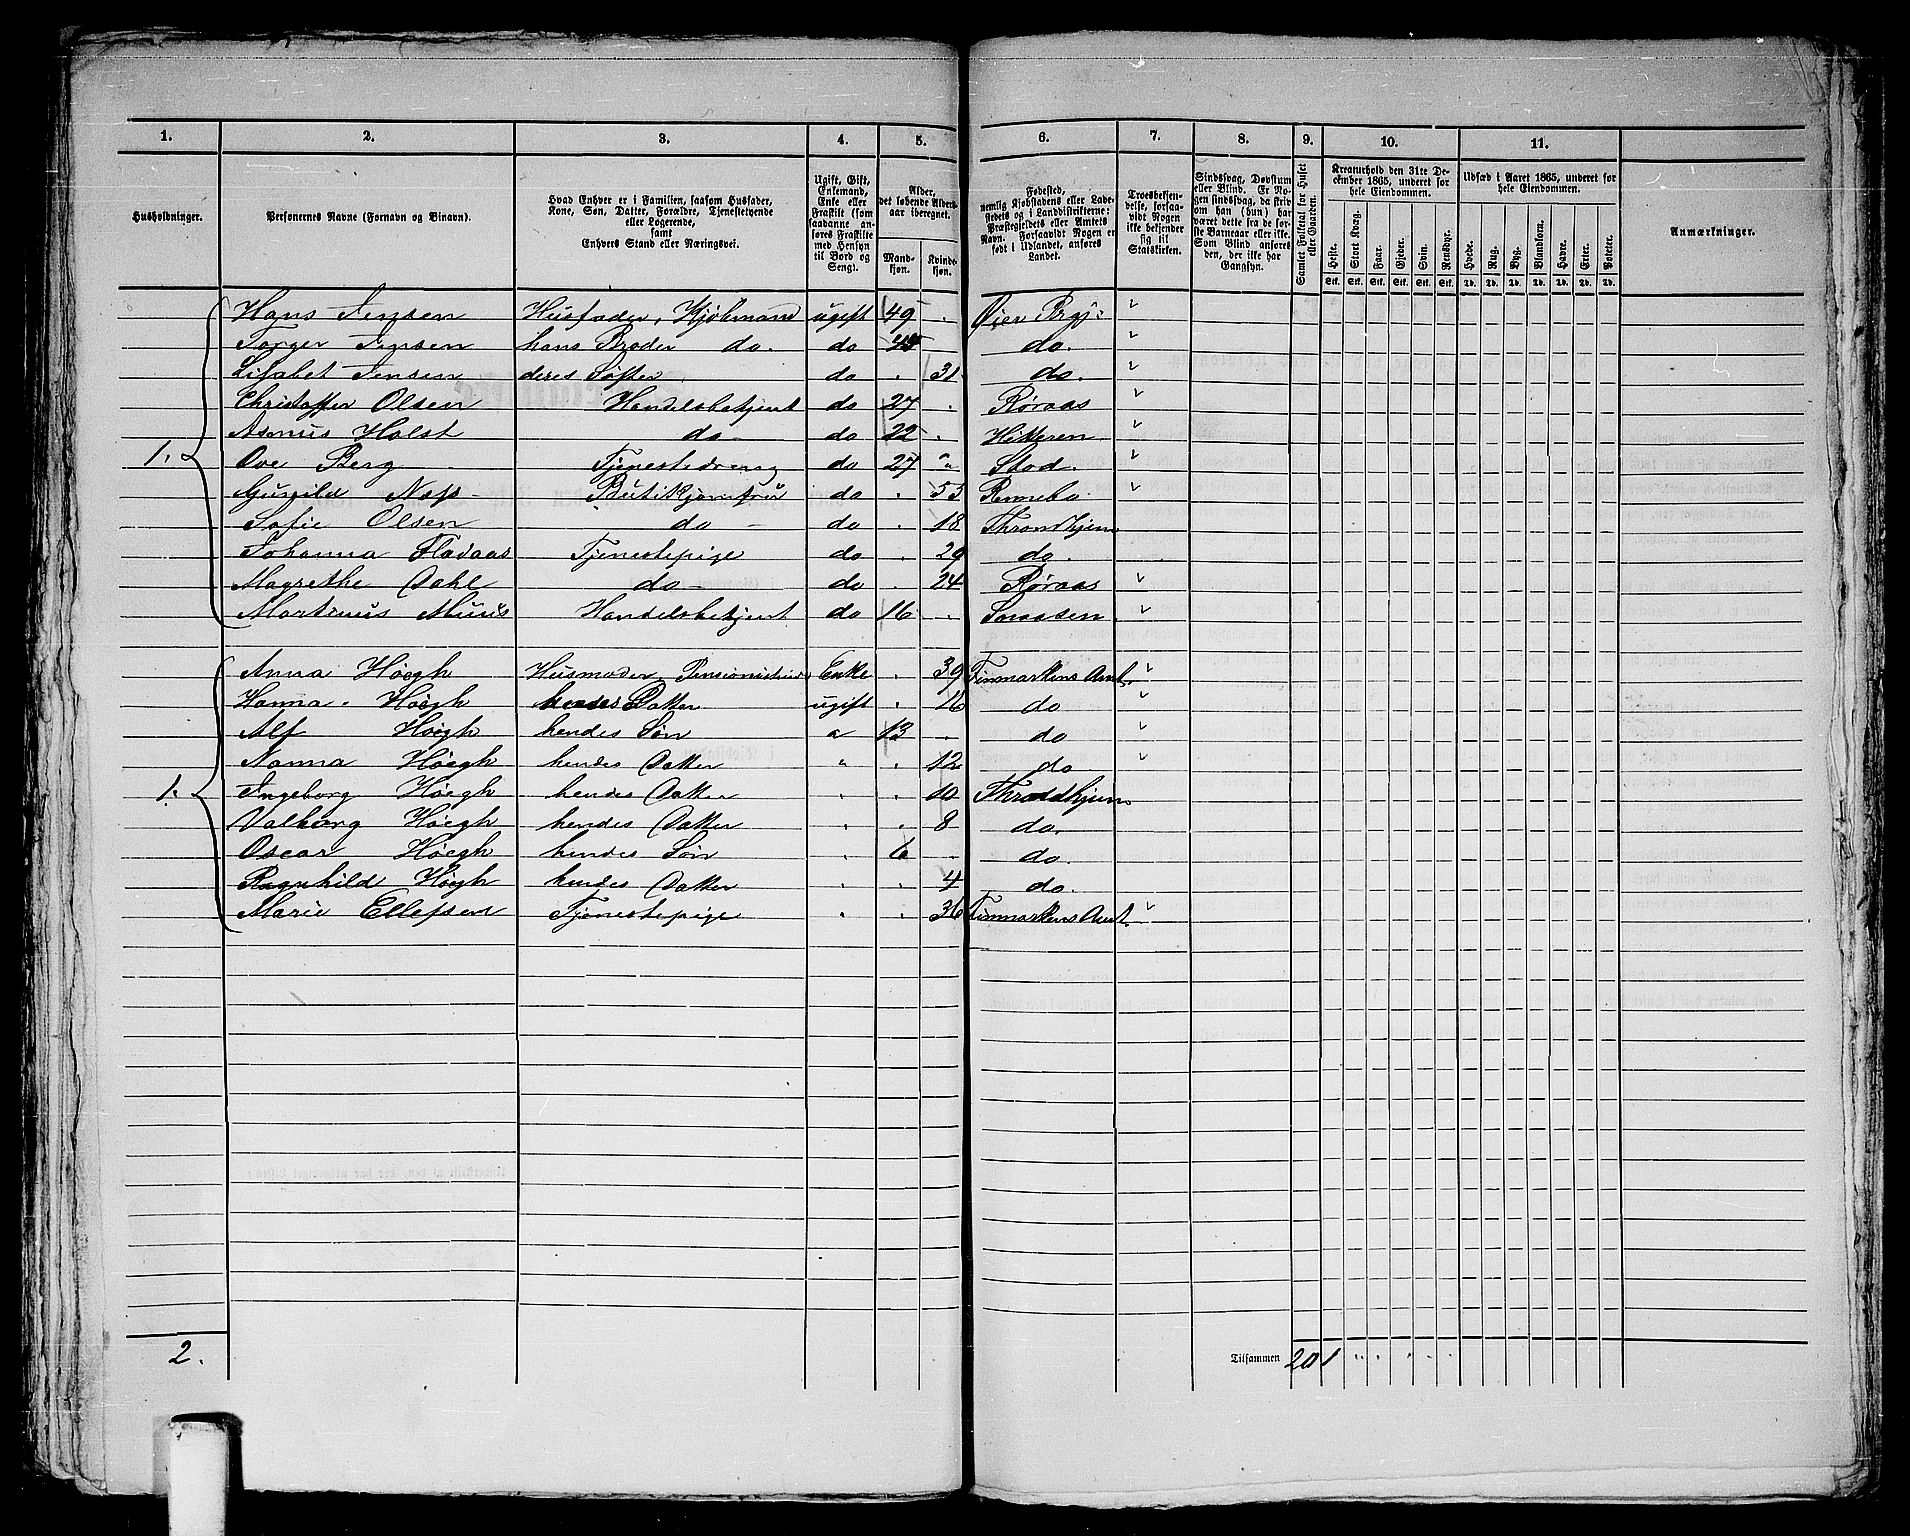 1. 2. 3. 4. 5. 6. 7. 8. 9. 10. 11.
Husholdninger.
Personernes Navne (Fornavn og Binavn).
Hvad Enhver er i Familien, saasom Husfader,
Kone, Søn, Datter, Forældre, Tjenestetyende
eller Logerende,
samt
Enhvers Stand eller Næringsvei.
Ugift, Gift,
Enkemand,
Enke eller
Fraskilt (som
saadanne an-
føres Fraskilte
med Hensyn
til Bord og
Seng).
Alder,
det løbende Alders-
aar iberegnet.
Mand-
kjøn.
Kvinde-
kjøn.
Fødested,
nemlig Kjøbstadens eller Lade-
stedets og i Landdistrikterne:
Præstegjeldets eller Amtets
Navn. Forsaavidt Nogen er
født i Udlandet, anføres
Landet.
Troesbekjen-
delse, forsaa-
vidt Nogen
ikke bekjender
sig til
Statskirken.
Sindssvag, Døvstum
eller Blind. Er No-
gen sindssvag, da skriv
om han (hun) har
været dette fra de før-
ste Barneaar eller ikke.
Som Blind anføres
den, der ikke har
Gangsyn.
Samlet Folketal for Huset
eller Gaarden.
Kreaturhold den 31te De-
cember 1865, underet for
hele Eiendommen.
Heste. Stort Kvæg. Faar. Gjeder. Svin. Rensdyr.
Stk. Stk. Stk. Stk. Stk. Stk.
Udsæd i Aaret 1865, underet for
hele Eiendommen.
Hvede. Rug. Byg. Blandkorn. Havre. Erter. Poteter.
Td. Td. Td. Td. Td. Td. Td.
Anmærkninger.
Hans Jensen Husfader, Kjøbmand ugift 49 Øier Prgj:
Torger Jensen hans Broder do. do do.
Lisabet Jensen deres Søster do 31 do.
Christoffer Olsen Handelsbetjent do 27 Røraas
Asmus Holst do do 22 Hitteren
1. Ove Berg Tjenestedreng do 27 Stod.
Gunild Næss Butikjomfru do 53 Rennebo
Sofie Olsen do do 18 Throndhjem
Johanna Flodaas Tjenestepige do 29 do.
Magrethe Dahl do do 24 Røraas
Martinus Muus Handelsbetjent do 16 Snaasen
Anna Høegh Husmoder, Enke 39 Finmarkens Amt.
Hanna Høegh hendes Datter ugift 16 do
Alf Høegh hendes Søn " 13 do
Nanna Høegh hendes Datter " 12 do
1. Ingeborg Høegh hendes Datter " 10 Throndhjem
Valborg Høegh hendes Datter " 8 do.
Oscar Høegh hendes Søn " 6 do.
Ragnhild Høegh hendes Datter " 4 do.
Marie Ellefsen Tjenestepige " 36 Finmarkens Amt.
2. Tilsammen 20 1